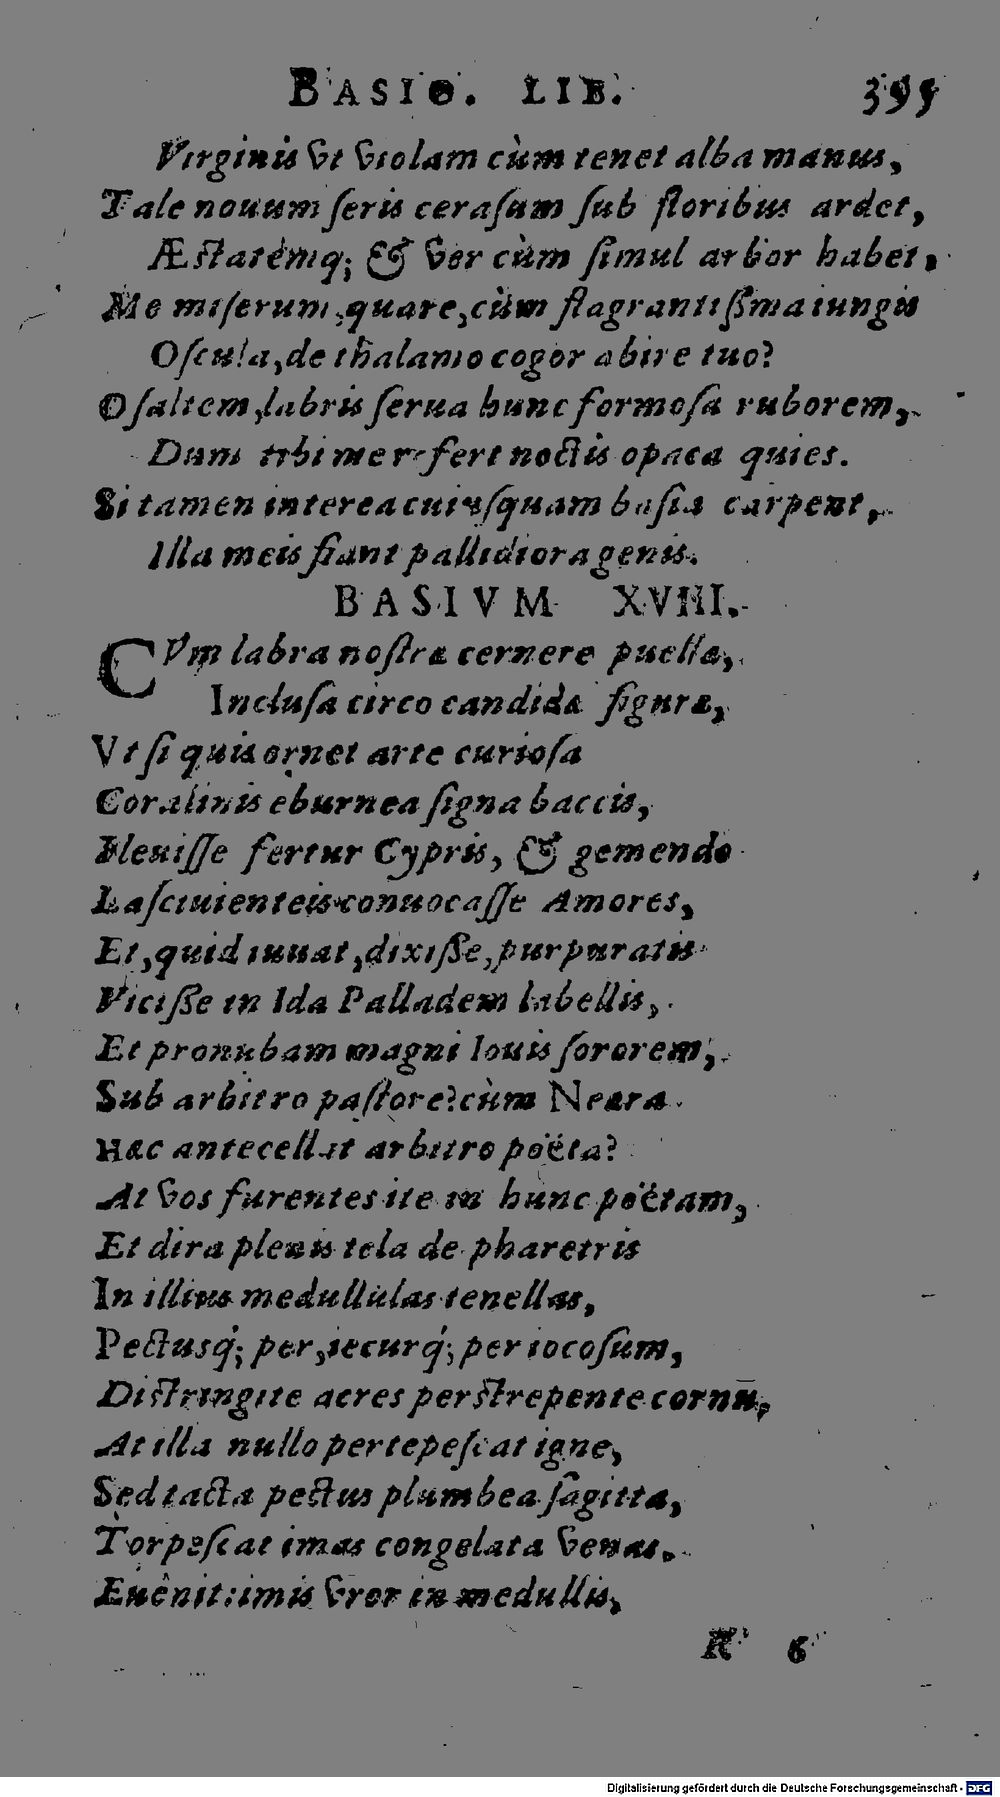 BASIO. LIB. 395
Virginis vt violam cùm tenet alba manus,
Tale nouum ſeris ceraſum ſub floribus ardet,
Æſtatémq; & ver cùm ſimul arbor habet,
Me miſerum, quare, cùm flagrantiſſima iungis
Oſcula, de thalamo cogor abire tuo?
O ſaltem, labris ſerua hunc formoſa ruborem,
Dum tibi me referet noctis opaca quies.
Si tamen interea cuiuſquam baſia carpent,
Illa meis fiant pallidiora genis.
BASIVM XVIII.
CVm labra noſtræ cernere puellæ,
Incluſa circo candidæ figuræ,
Vt ſi quis ornet arte curioſa
Coralinis eburnea ſigna baccis,
Fleuiſſe fertur Cypris, & gemendo
Laſciuienteis conuocaſſe Amores,
Et, quid iuuat, dixiſſe, purpuratis
Viciſſe in Ida Palladem labellis,
Et pronubam magni Iouis ſororem,
Sub arbitro paſtore? cùm Neæra
Hæc antecellat arbitro poëta?
At vos furentes ite in hunc poëtam,
Et dira plenis tela de pharetris
In illius medullulas tenellas,
Pectusq́; per, iecurq́; per iocoſum,
Diſtringite acres perſtrepente cornu,
At illa nullo pertepeſcat igne,
Sed tacta pectus plumbea ſagitta,
Torpeſcat imas congelata venas.
Euênit: imis vror in medullis,
R 6
Digitalisierung gefördert durch die Deutsche Forschungsgemeinschaft - DFG